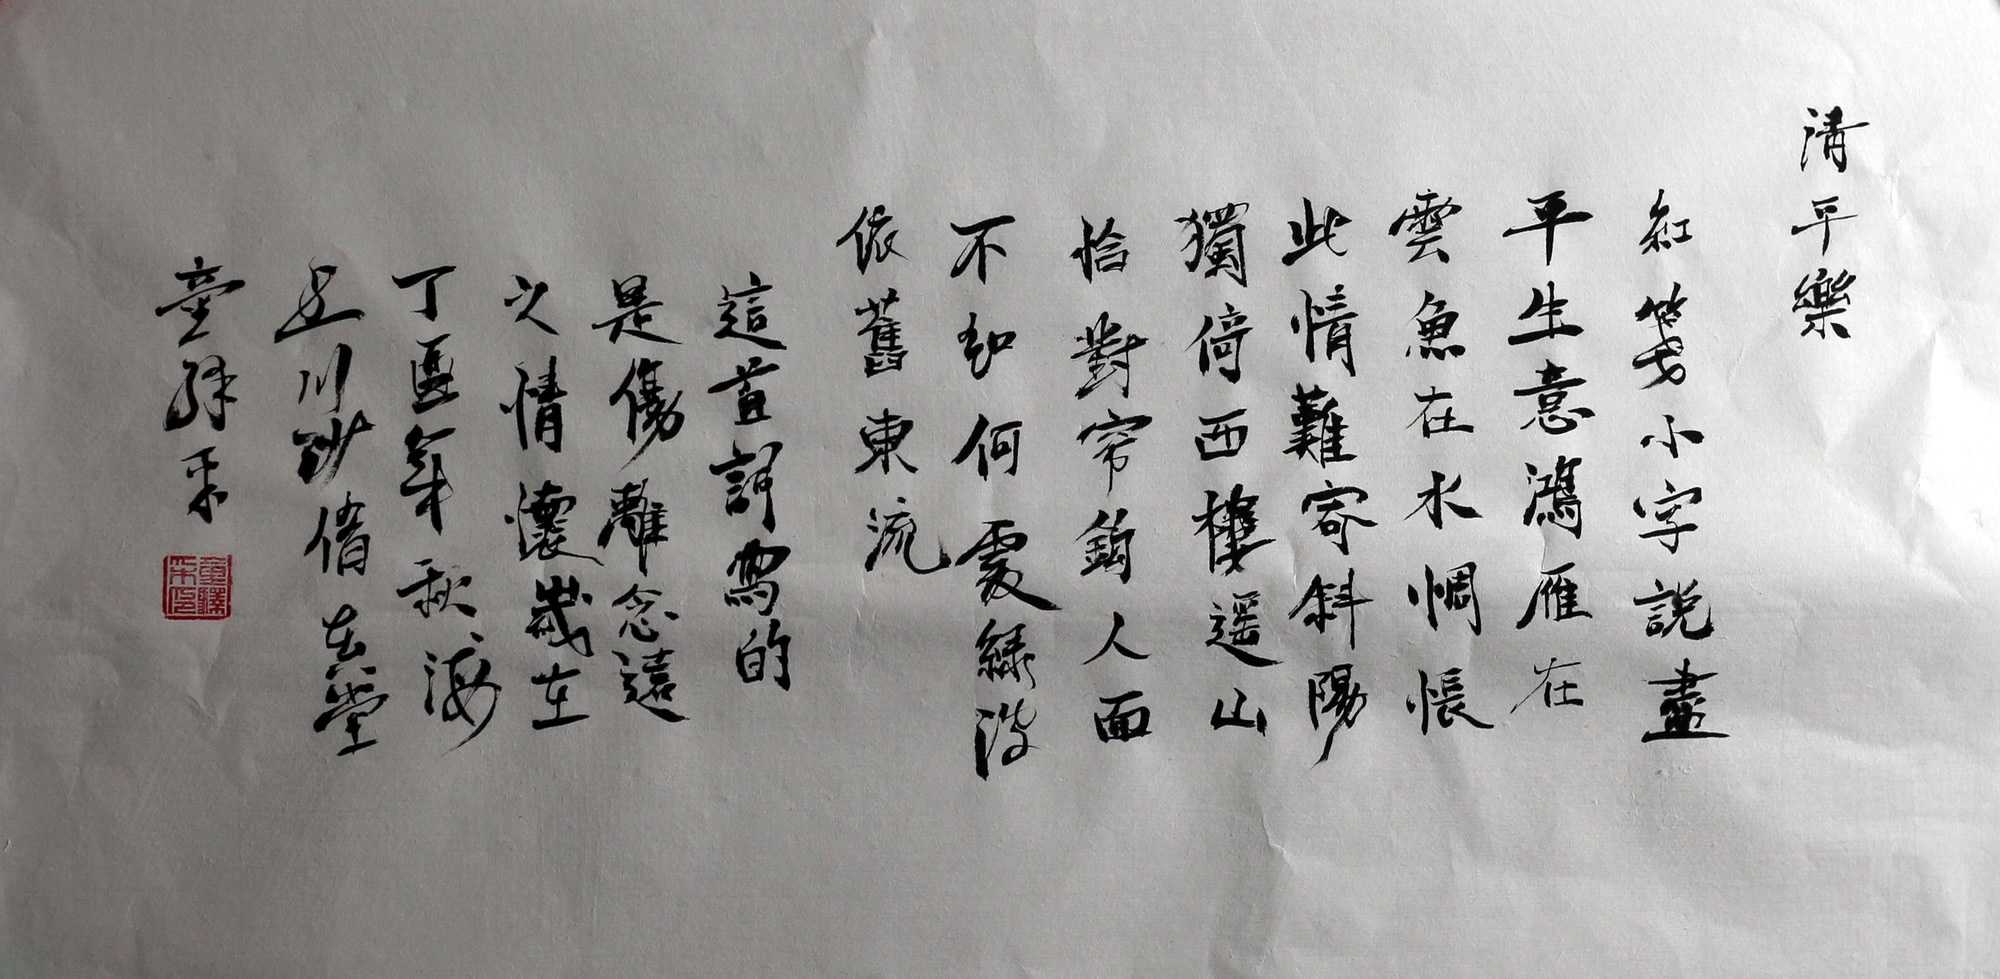 清平樂
紅箋小字說盡
平生意鴻雁在
雲魚在水惆悵
此情難寄斜陽
獨倚西樓遥山
恰對帘鈎人面
不知何處綠波
依舊東流
這首詞寫的
是傷離念遠
之情懷歲在
丁酉年秋海
上川沙借古堂
童释采